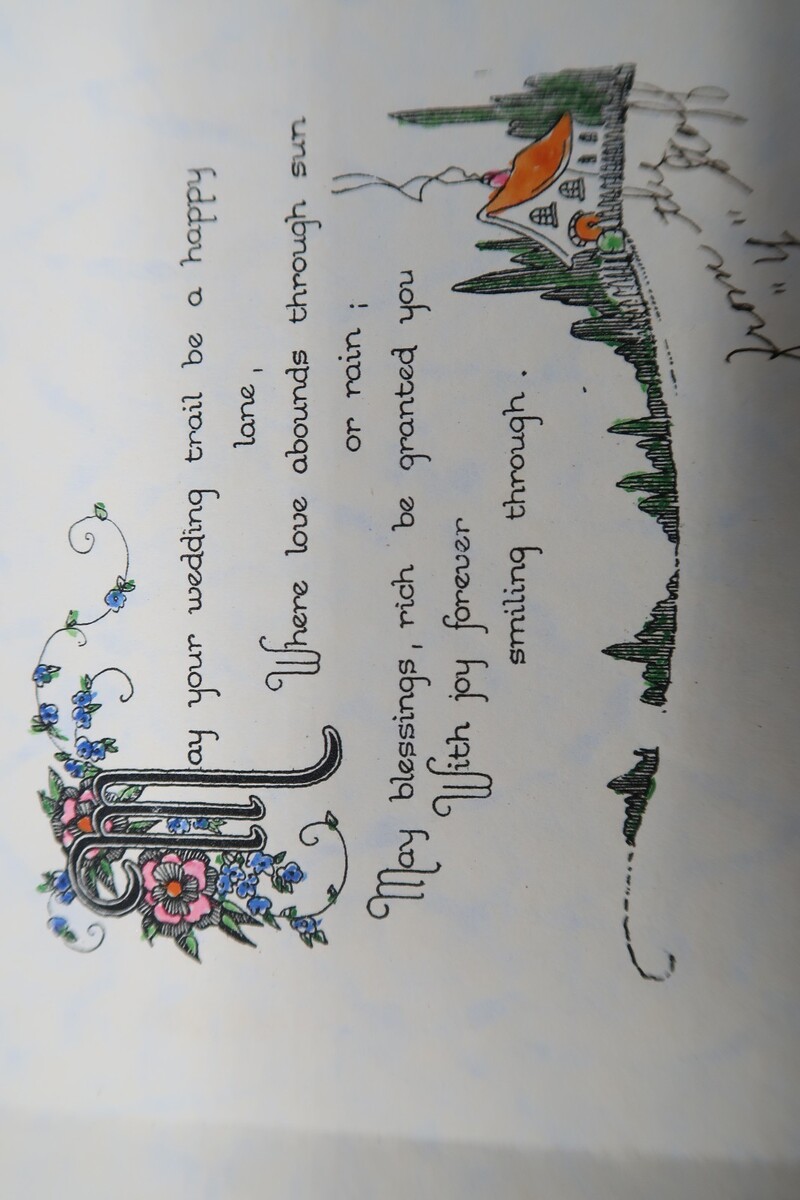 May your wedding trail be a happy
lane,
Where love abounds through sun
or rain;
May blessings, rich be granted you
With joy forever
smiling through.
From the
"Y"